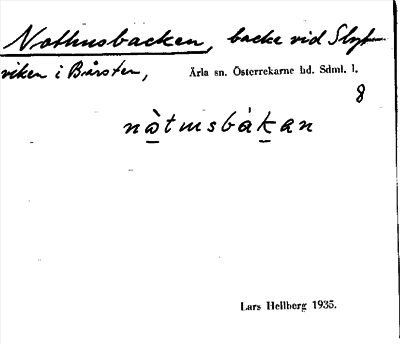 Nothusbacken, backe vid Slyt-
viken i Bårsten, Ärla sn. Österrekarne hd. Sdml. l.
8
nàtusbákan
Lars Hellberg 1935.